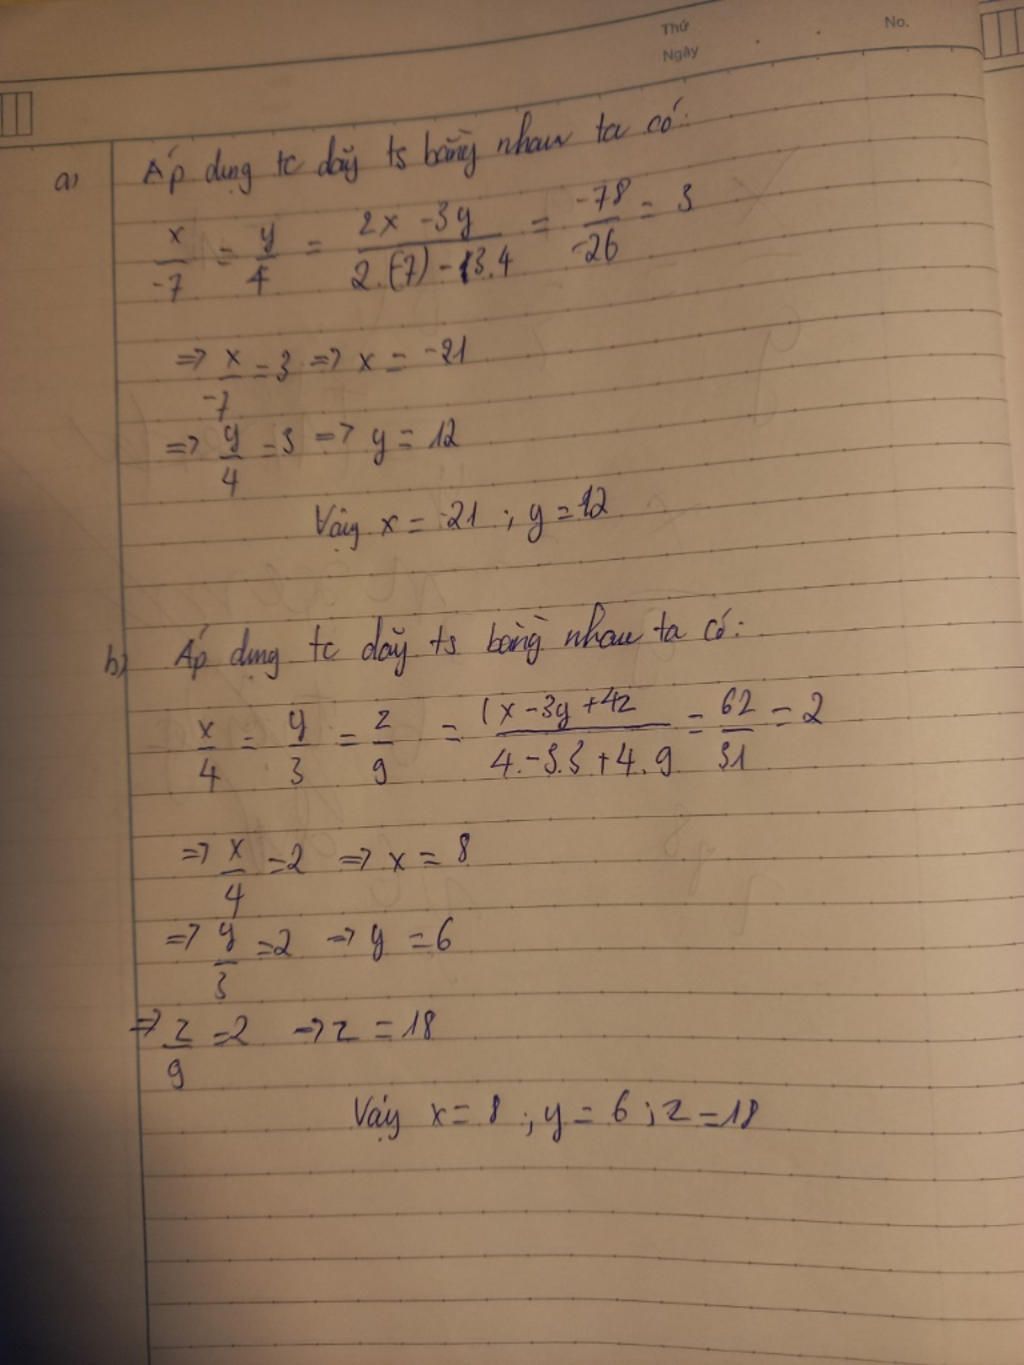 Thứ
Ngày
No.
a) Áp dụng tc dãy ts bằng nhau ta có:
x/-7 = y/4 = 2x - 3y / 2.(-7) - 3.4 = -78/-26 = 3
=> x/-7 = 3 => x = -21
=> y/4 = 3 => y = 12
Vậy x = -21 ; y = 12
b) Áp dụng tc dãy ts bằng nhau ta có:
x/4 = y/3 = z/9 = (x - 3y + 4z / 4.-3.3 + 4.9 = 62/31 = 2
=> x/4 = 2 => x = 8
=> y/3 = 2 => y = 6
=> z/9 = 2 => z = 18
Vậy x = 8 ; y = 6 ; z = 18